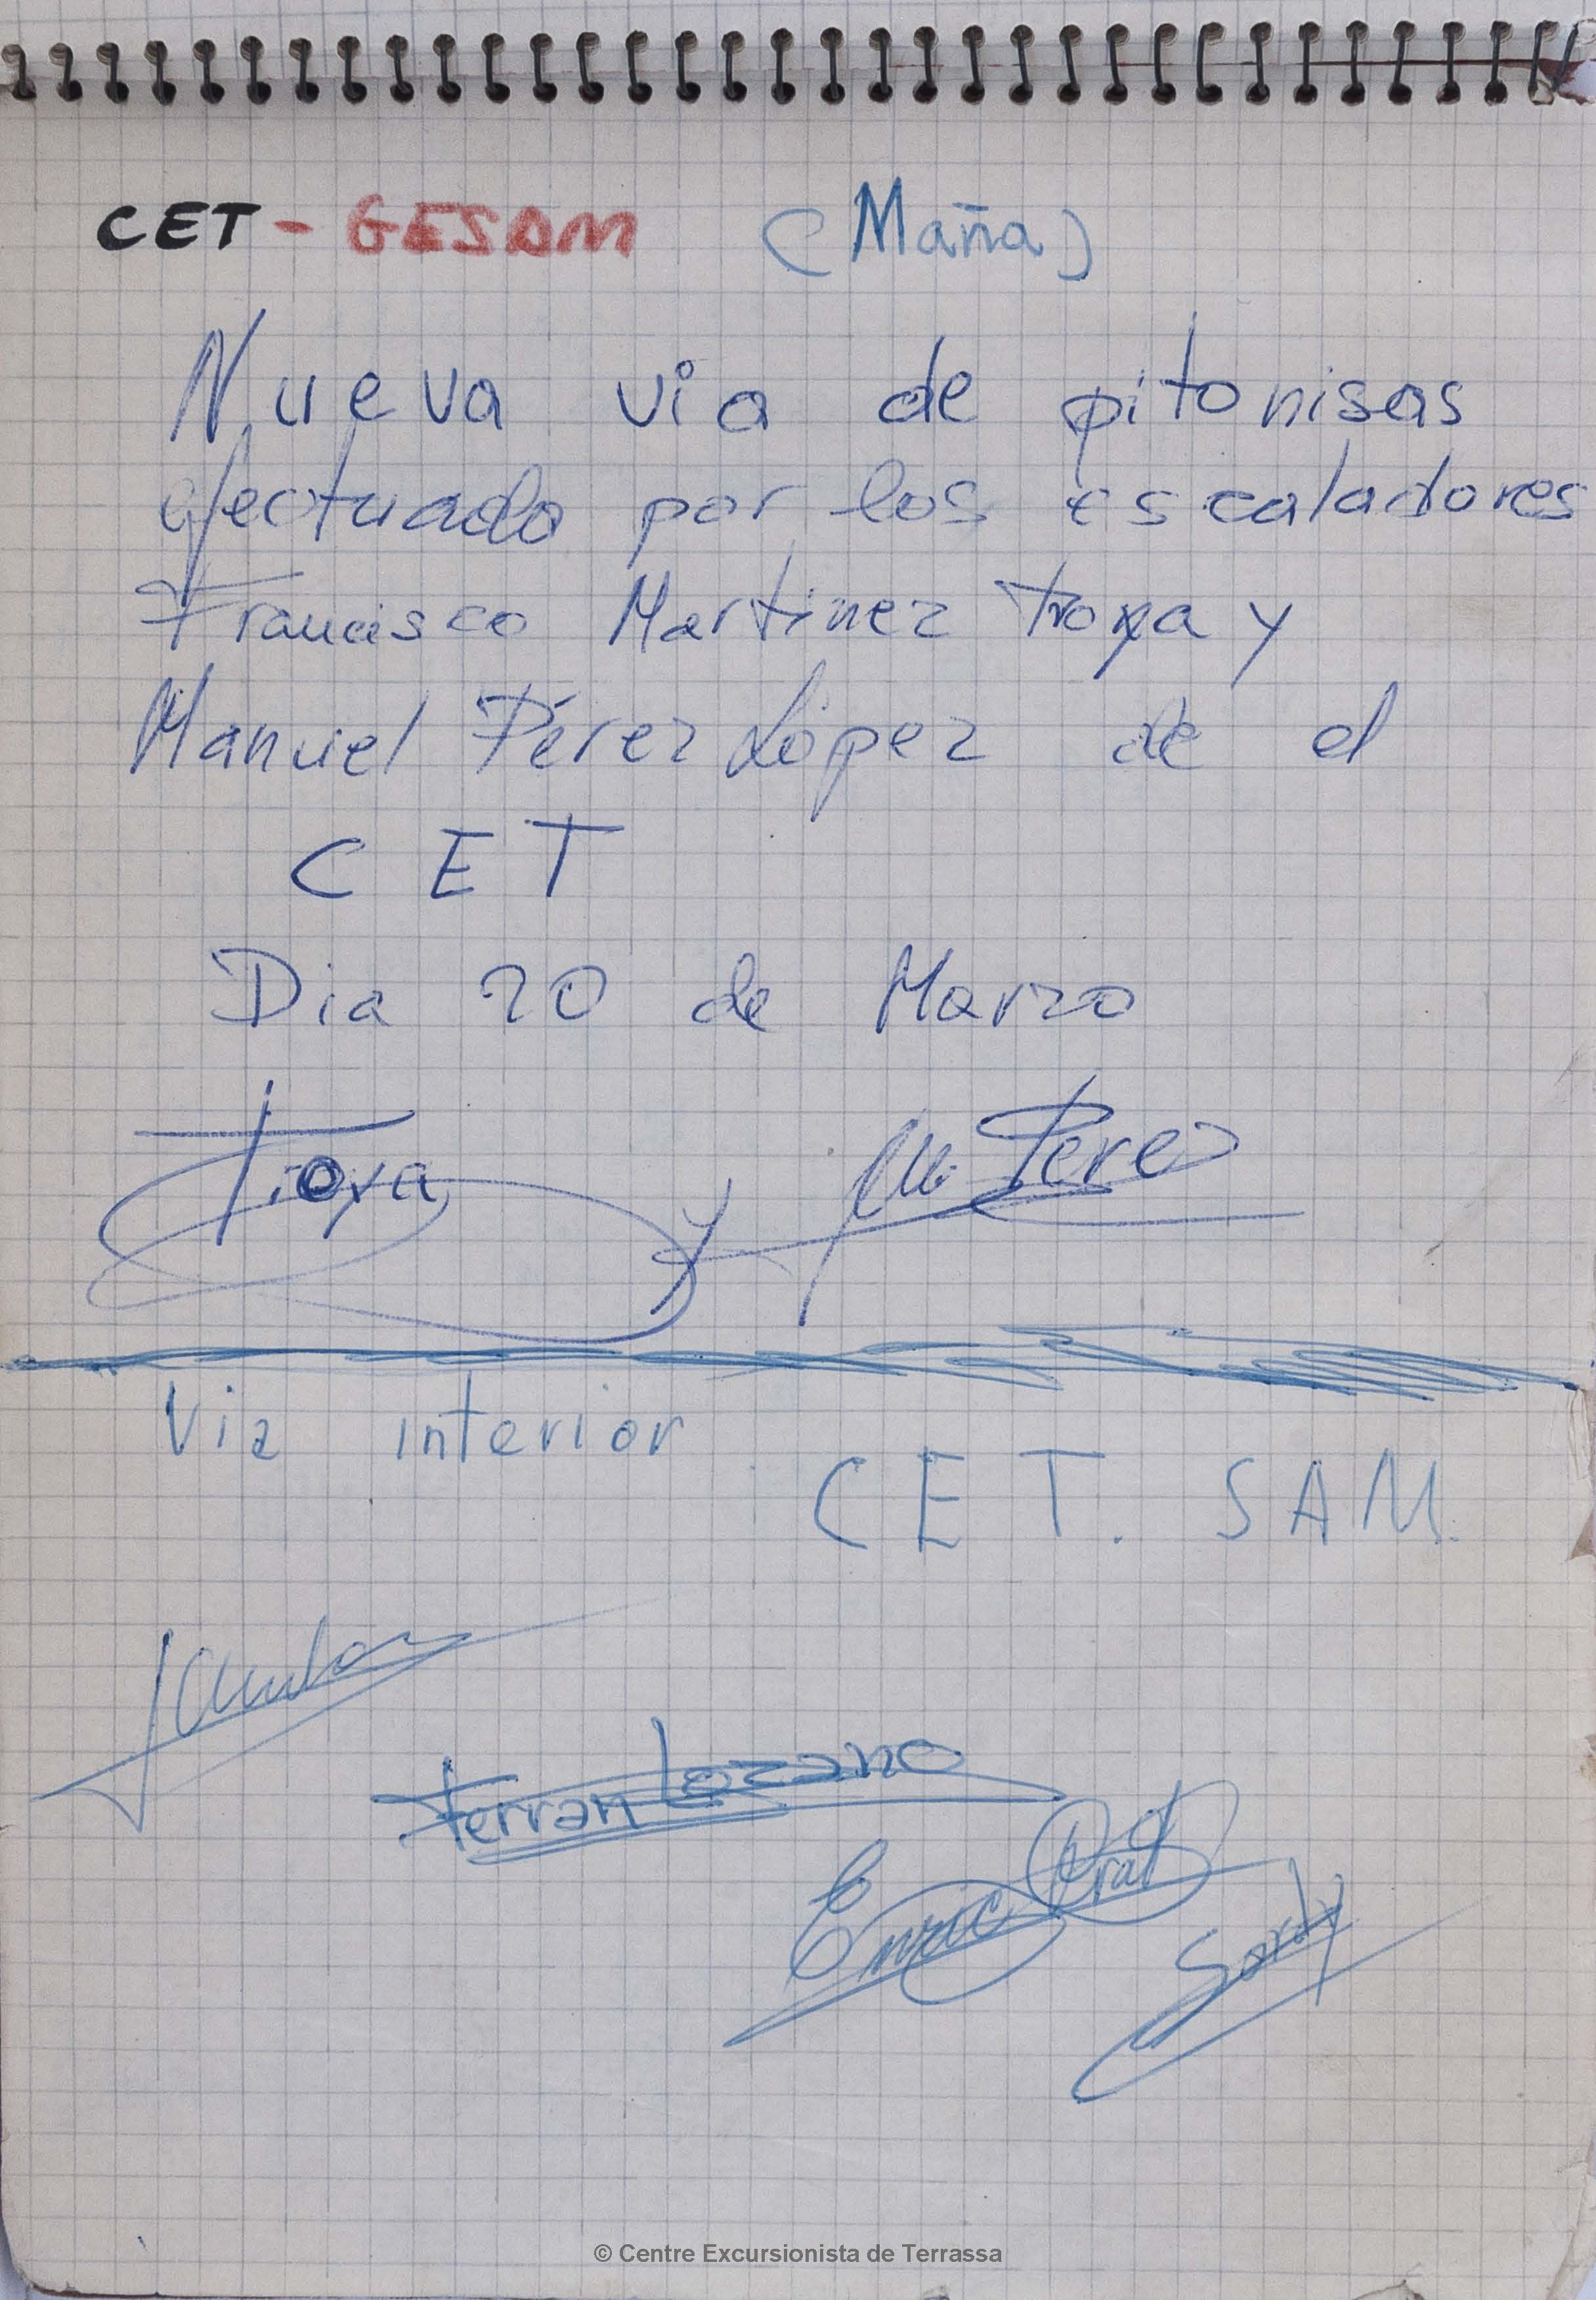 CET - GESAM (Maña)
Nueva via de pitonisas
efectuado por los escaladores
Francisco Martinez Troya y
Manuel Pérez López de el
CET
Dia 20 de Marzo
Troya y M. Perez
Via interior
CET. SAM.
Ferran Lozano
Enric Prat
© Centre Excursionista de Terrassa